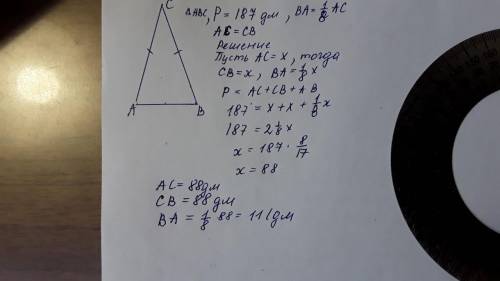 C
ΔABC, P = 187 дм, BA = 1/8 AC
AC = CB
Решение
Пусть AC = x, тогда
CB = x, BA = 1/8 x
P = AC + CB + AB
187 = x + x + 1/8 x
187 = 2 1/8 x
x = 187 · 8/17
x = 88
A B
AC = 88 дм
CB = 88 дм
BA = 1/8 88 = 11 (дм